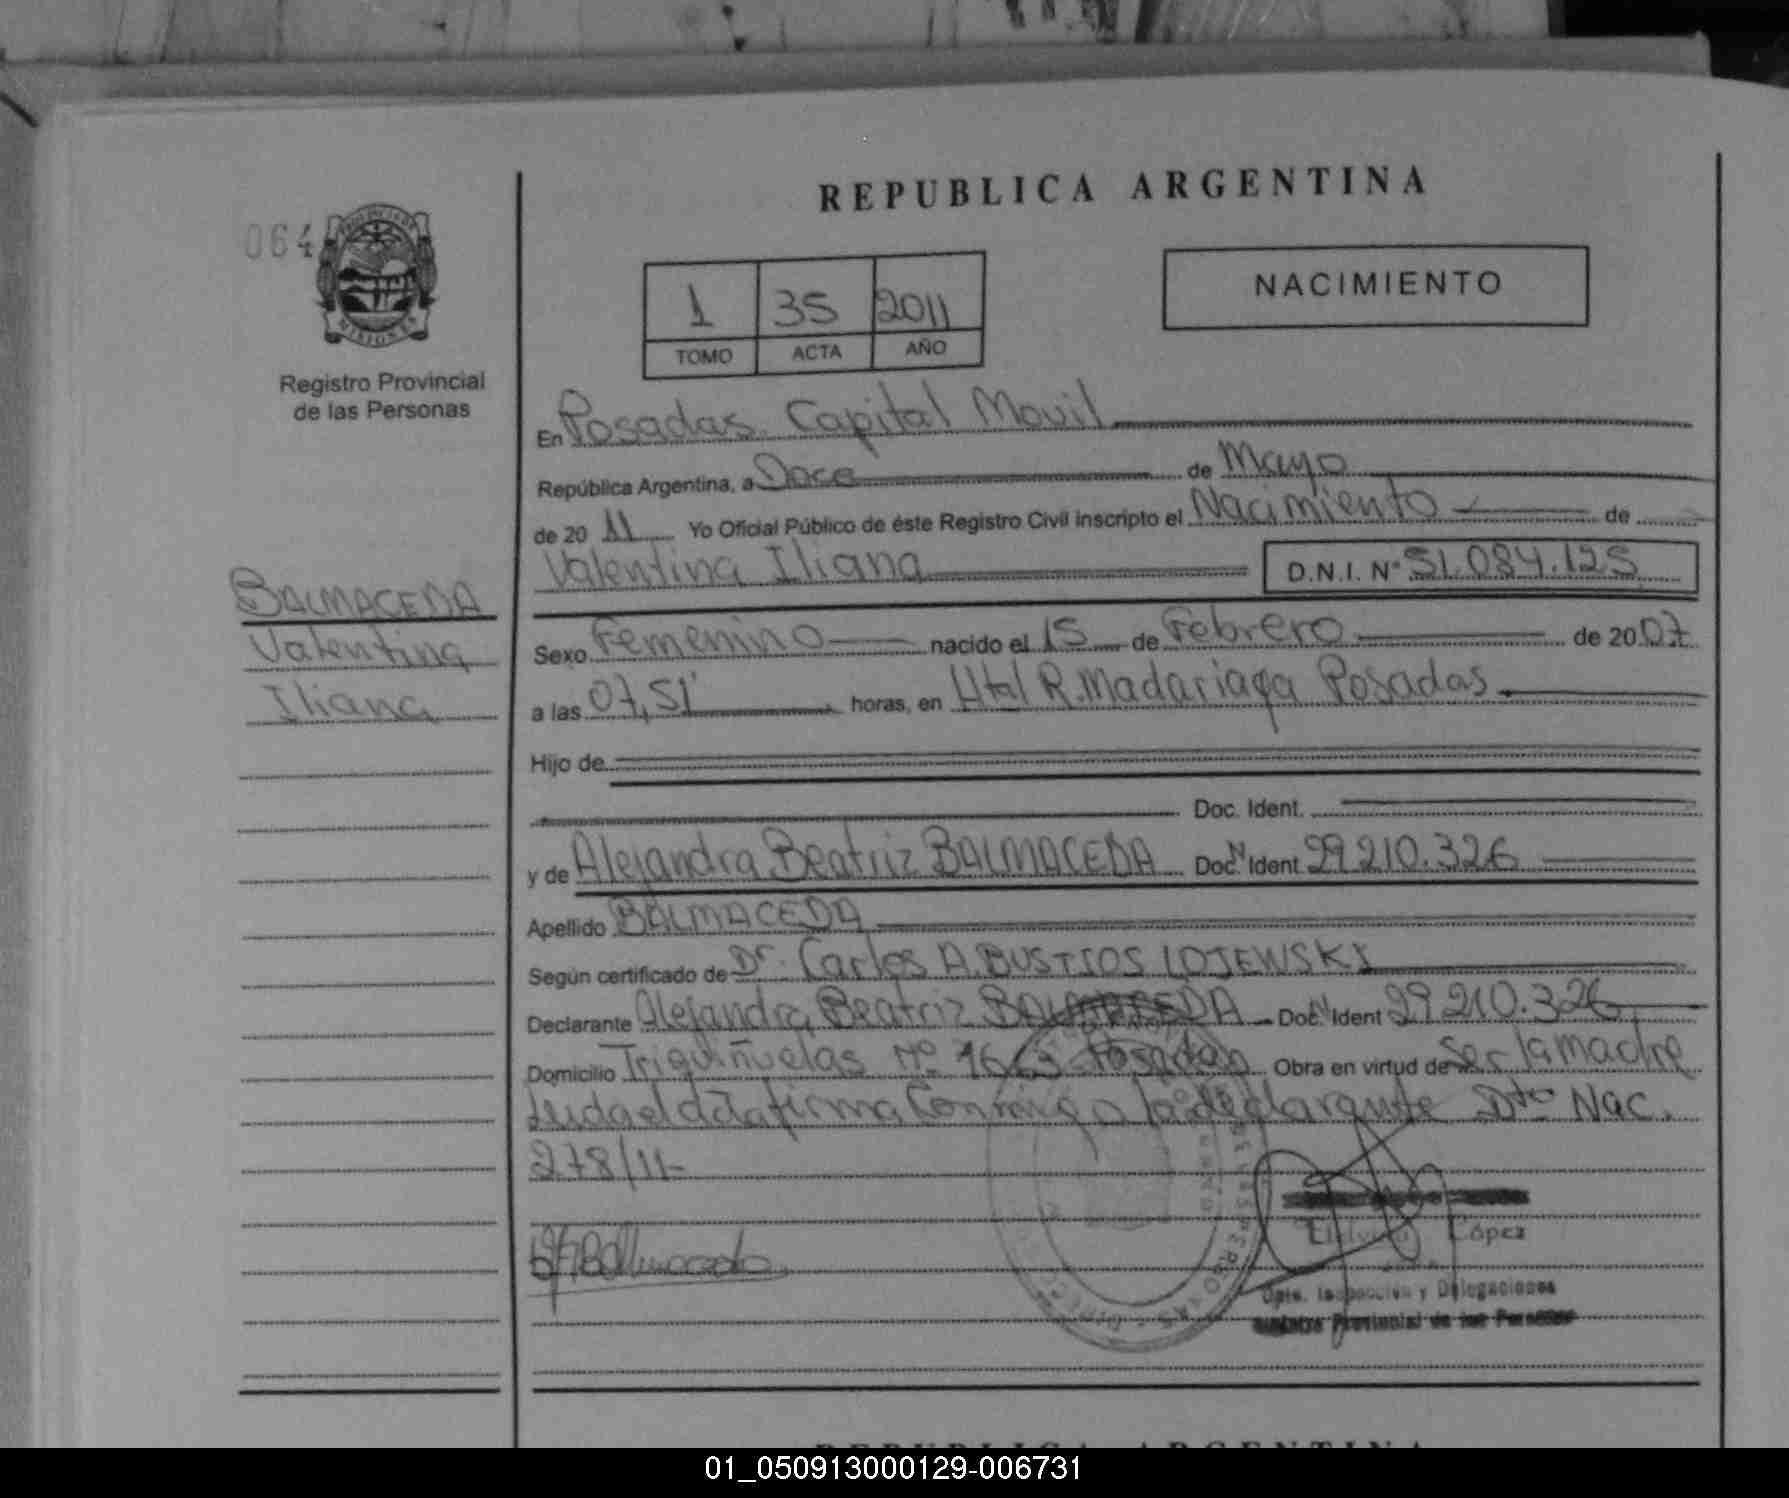 REPUBLICA ARGENTINA
064
MISIONES
Registro Provincial
de las Personas
1 35 2011
TOMO ACTA AÑO
NACIMIENTO
En Posadas Capital Movil
República Argentina, a Doce de Mayo
de 20 11 Yo Oficial Público de éste Registro Civil inscripto el Nacimiento de
Valentina Iliana D.N.I. Nº 51.084.125
BALMACEDA
Valentina
Iliana
Sexo Femenino nacido el 15 de Febrero de 2007
a las 07,51' horas, en Htal R. Madariaga Posadas
Hijo de
Doc. Ident.
y de Alejandra Beatriz BALMACEDA Doc. N Ident 29.210.326
Apellido BALMACEDA
Según certificado de Dr. Carlos A. BUSTIOS LOJEWSKI
Declarante Alejandra Beatriz BALMACEDA Doc. N Ident 29.210.326
Domicilio Triquiñuelas Nº Posadas Obra en virtud de Ser la madre
Leida el acta firma Conmigo la declarante Dto Nac.
278/11-
López
Dpto. Inspección y Delegaciones
Registro Provincial de las Personas
REPUBLICA ARGENTINA
01_050913000129-006731